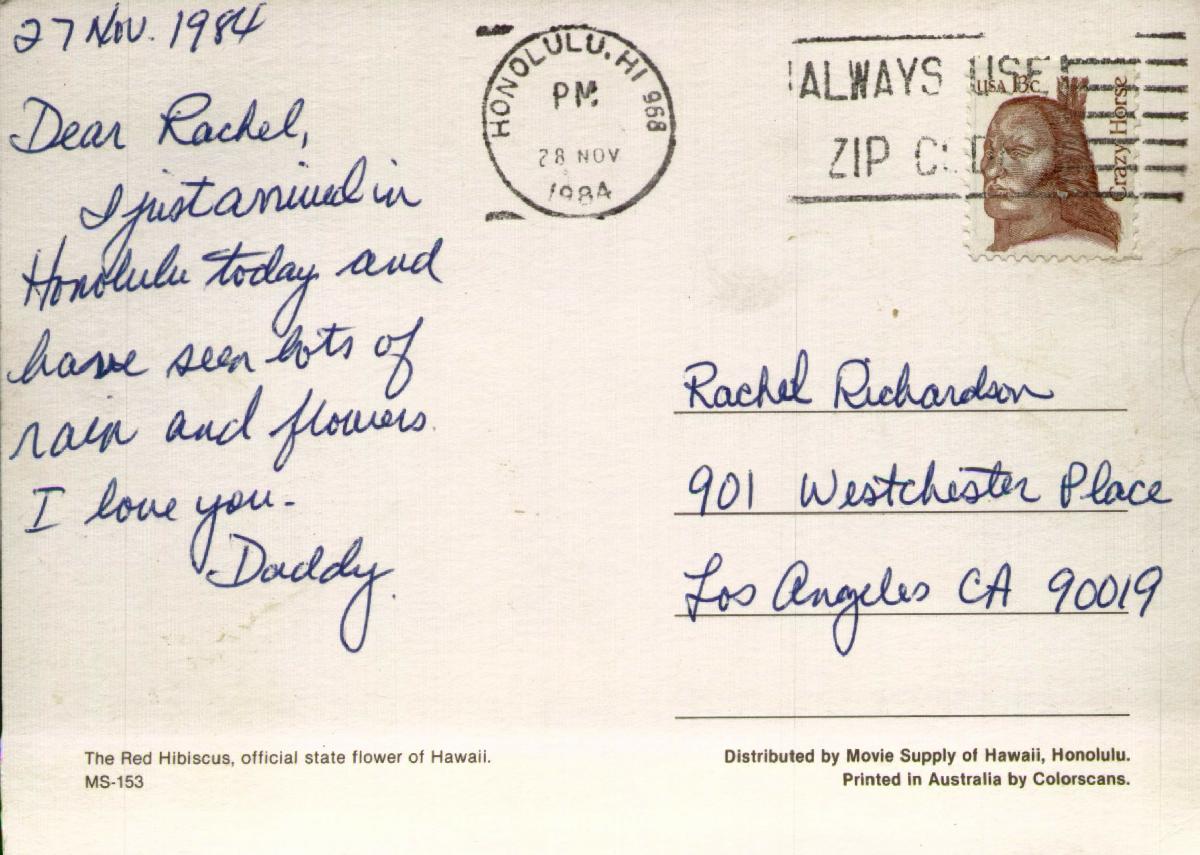 27 Nov. 1984
Dear Rachel,
I just arrived in
Honolulu today and
have seen lots of
rain and flowers.
I love you-
Daddy.
HONOLULU, HI 968
PM
28 NOV
1984
ALWAYS USE
ZIP CODE
USA 13c
Crazy Horse
Rachel Richardson
901 Westchester Place
Los Angeles CA 90019
The Red Hibiscus, official state flower of Hawaii.
MS-153
Distributed by Movie Supply of Hawaii, Honolulu.
Printed in Australia by Colorscans.